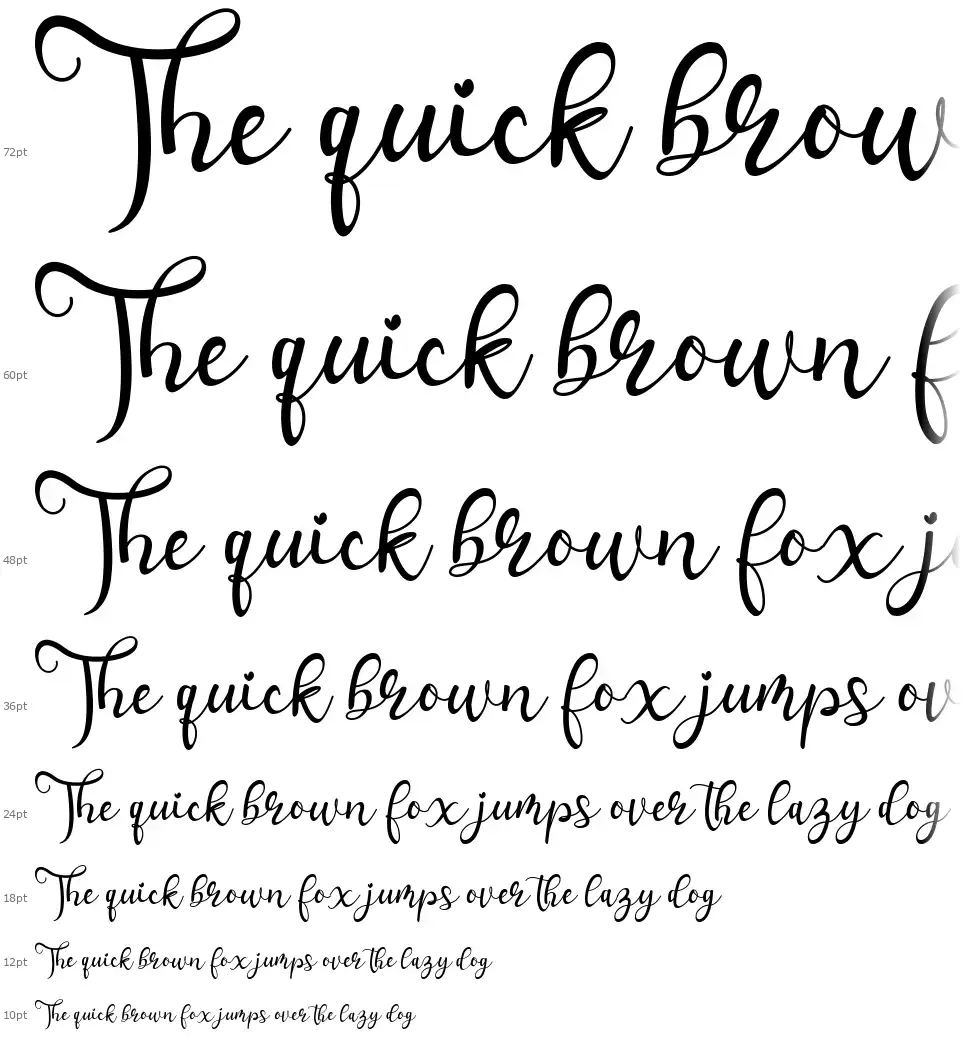 72pt The quick brow
60pt The quick brown f
48pt The quick brown fox j
36pt The quick brown fox jumps ov
24pt The quick brown fox jumps over the lazy dog
18pt The quick brown fox jumps over the lazy dog
12pt The quick brown fox jumps over the lazy dog
10pt The quick brown fox jumps over the lazy dog